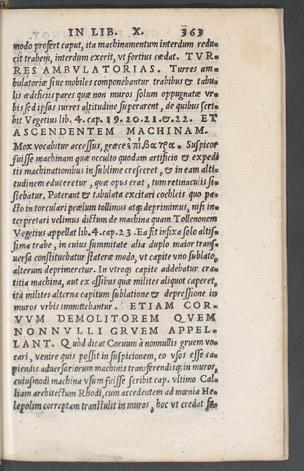 IN LIB. X. 363
modo profert caput, ita machinamentum interdum redu-
cit trabem, interdum exerit, vt fortius cædat. TVR-
RES AMBVLATORIAS. Turres am-
bulatoriæ siue mobiles componebantur trabibus & tabu-
lis ædificiis pares quæ non muros solum oppugnatæ vr-
bis sed ipsas turres altitudine superarent, de quibus scri-
bit Vegetius lib. 4. cap. 19. 20. 21. & 22. ET
ASCENDENTEM MACHINAM.
Mox vocabitur accessus, græce Suspicor
fuisse machinam quæ occulto quodam artificio & expedi-
tis machinationibus in sublime cresceret, & in eam alti-
tudinem educeretur, quæ opus erat, tum retinaculis si-
stebatur. Poterant & tabulata excitari cochleis quo pa-
cto in torculari prælum tollimus atq; deprimimus, nisi in-
terpretari velimus dictum de machina quam Tollenonem
Vegetius appellat lib. 4. cap. 23. Ea fit infixa solo altis-
sima trabe, in cuius summitate alia duplo maior trans-
uersa constituebatur stateræ modo, vt capite vno sublato,
alterum deprimeretur. In vtroq; capite addebatur cra-
titia machina, aut ex assibus quæ milites aliquot caperet,
ita milites alterna capitum sublatione & depressione in
muros vrbis immittebantur. ETIAM COR-
VVM DEMOLITOREM QVEM
NONNVLLI GRVEM APPEL-
LANT. Quòd dicat Coruum à nonnullis gruem vo-
cari, venire quis possit in suspicionem, eo vsos esse ca-
piendis aduersariorum machinis transferendisq; in muros,
cuiusmodi machina vsum fuisse scribit cap. vltimo Cal-
liam architectum Rhodi, cum accedentem ad mœnia He-
lepolim correptam transtulit in muros, hoc vt credat